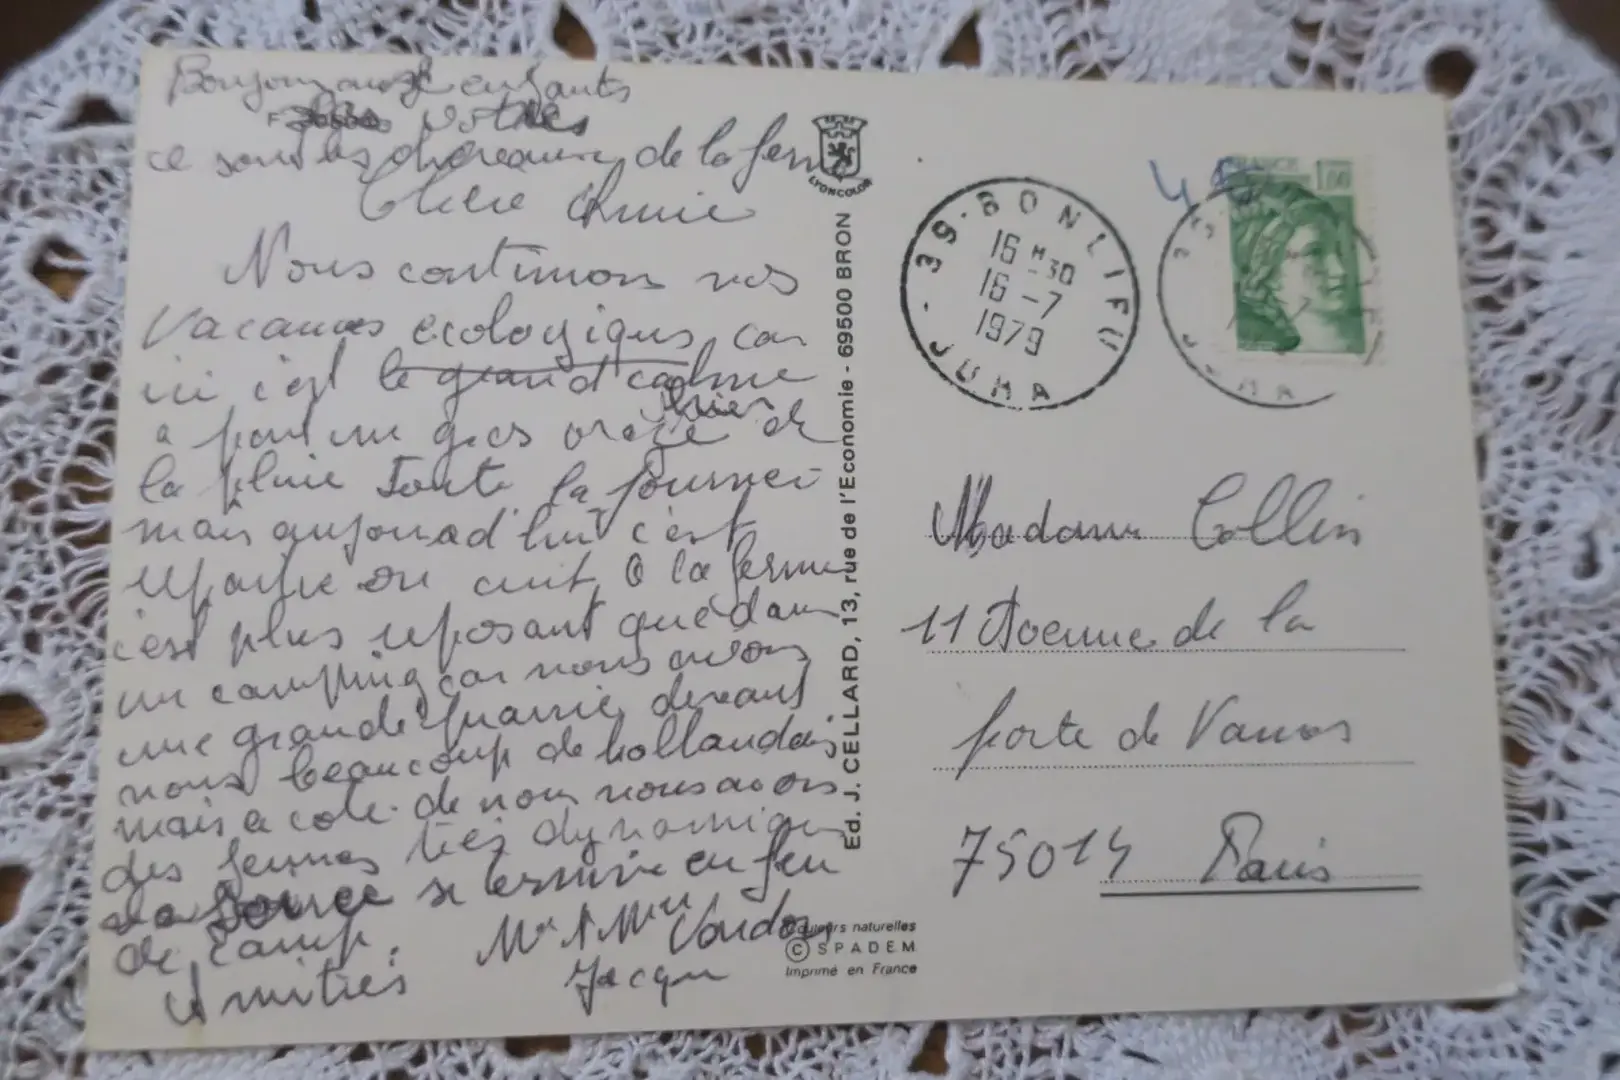 Bonjour aux enfants
votre
ce sont les chevaux de la ferme
Chère Amie
Nous continuons nos
vacances écologiques, car
ici c'est le grand calme
hier
a part un gros orage et
la pluie toute la journée
mais aujourd'hui c'est
reparti on cuit, à la ferme
c'est plus reposant que dans
un camping car nous avons
une grande prairie devant
nous beaucoup de hollandais
mais a coté de nous nous avons
des jeunes très dynamiques
la soirée se termine en feu
de camp.
Amitiés
Mr & Mme
Jacques
LYONCOLOR
Ed. J. CELLARD, 13, rue de l'Economie - 69500 BRON
Couleurs naturelles
© SPADEM
Imprimé en France
39 - BONLIEU
16 H 30
16 - 7
1979
JURA
FRANCE
1,00
39
JURA
Madame Collin
11 Avenue de la
porte de Vanves
75014 Paris